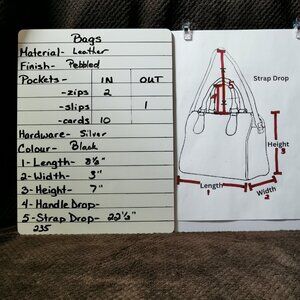 Bags
Material- Leather
Finish- Pebbled
Pockets- IN OUT
-zips 2
-slips 1
-cards 10
Hardware- Silver
Colour- Black
1-Length- 8½"
2-Width- 3"
3-Height- 7"
4-Handle Drop-
5-Strap Drop- 22½"
235
Strap Drop
Height
3
Length
1
Width
2